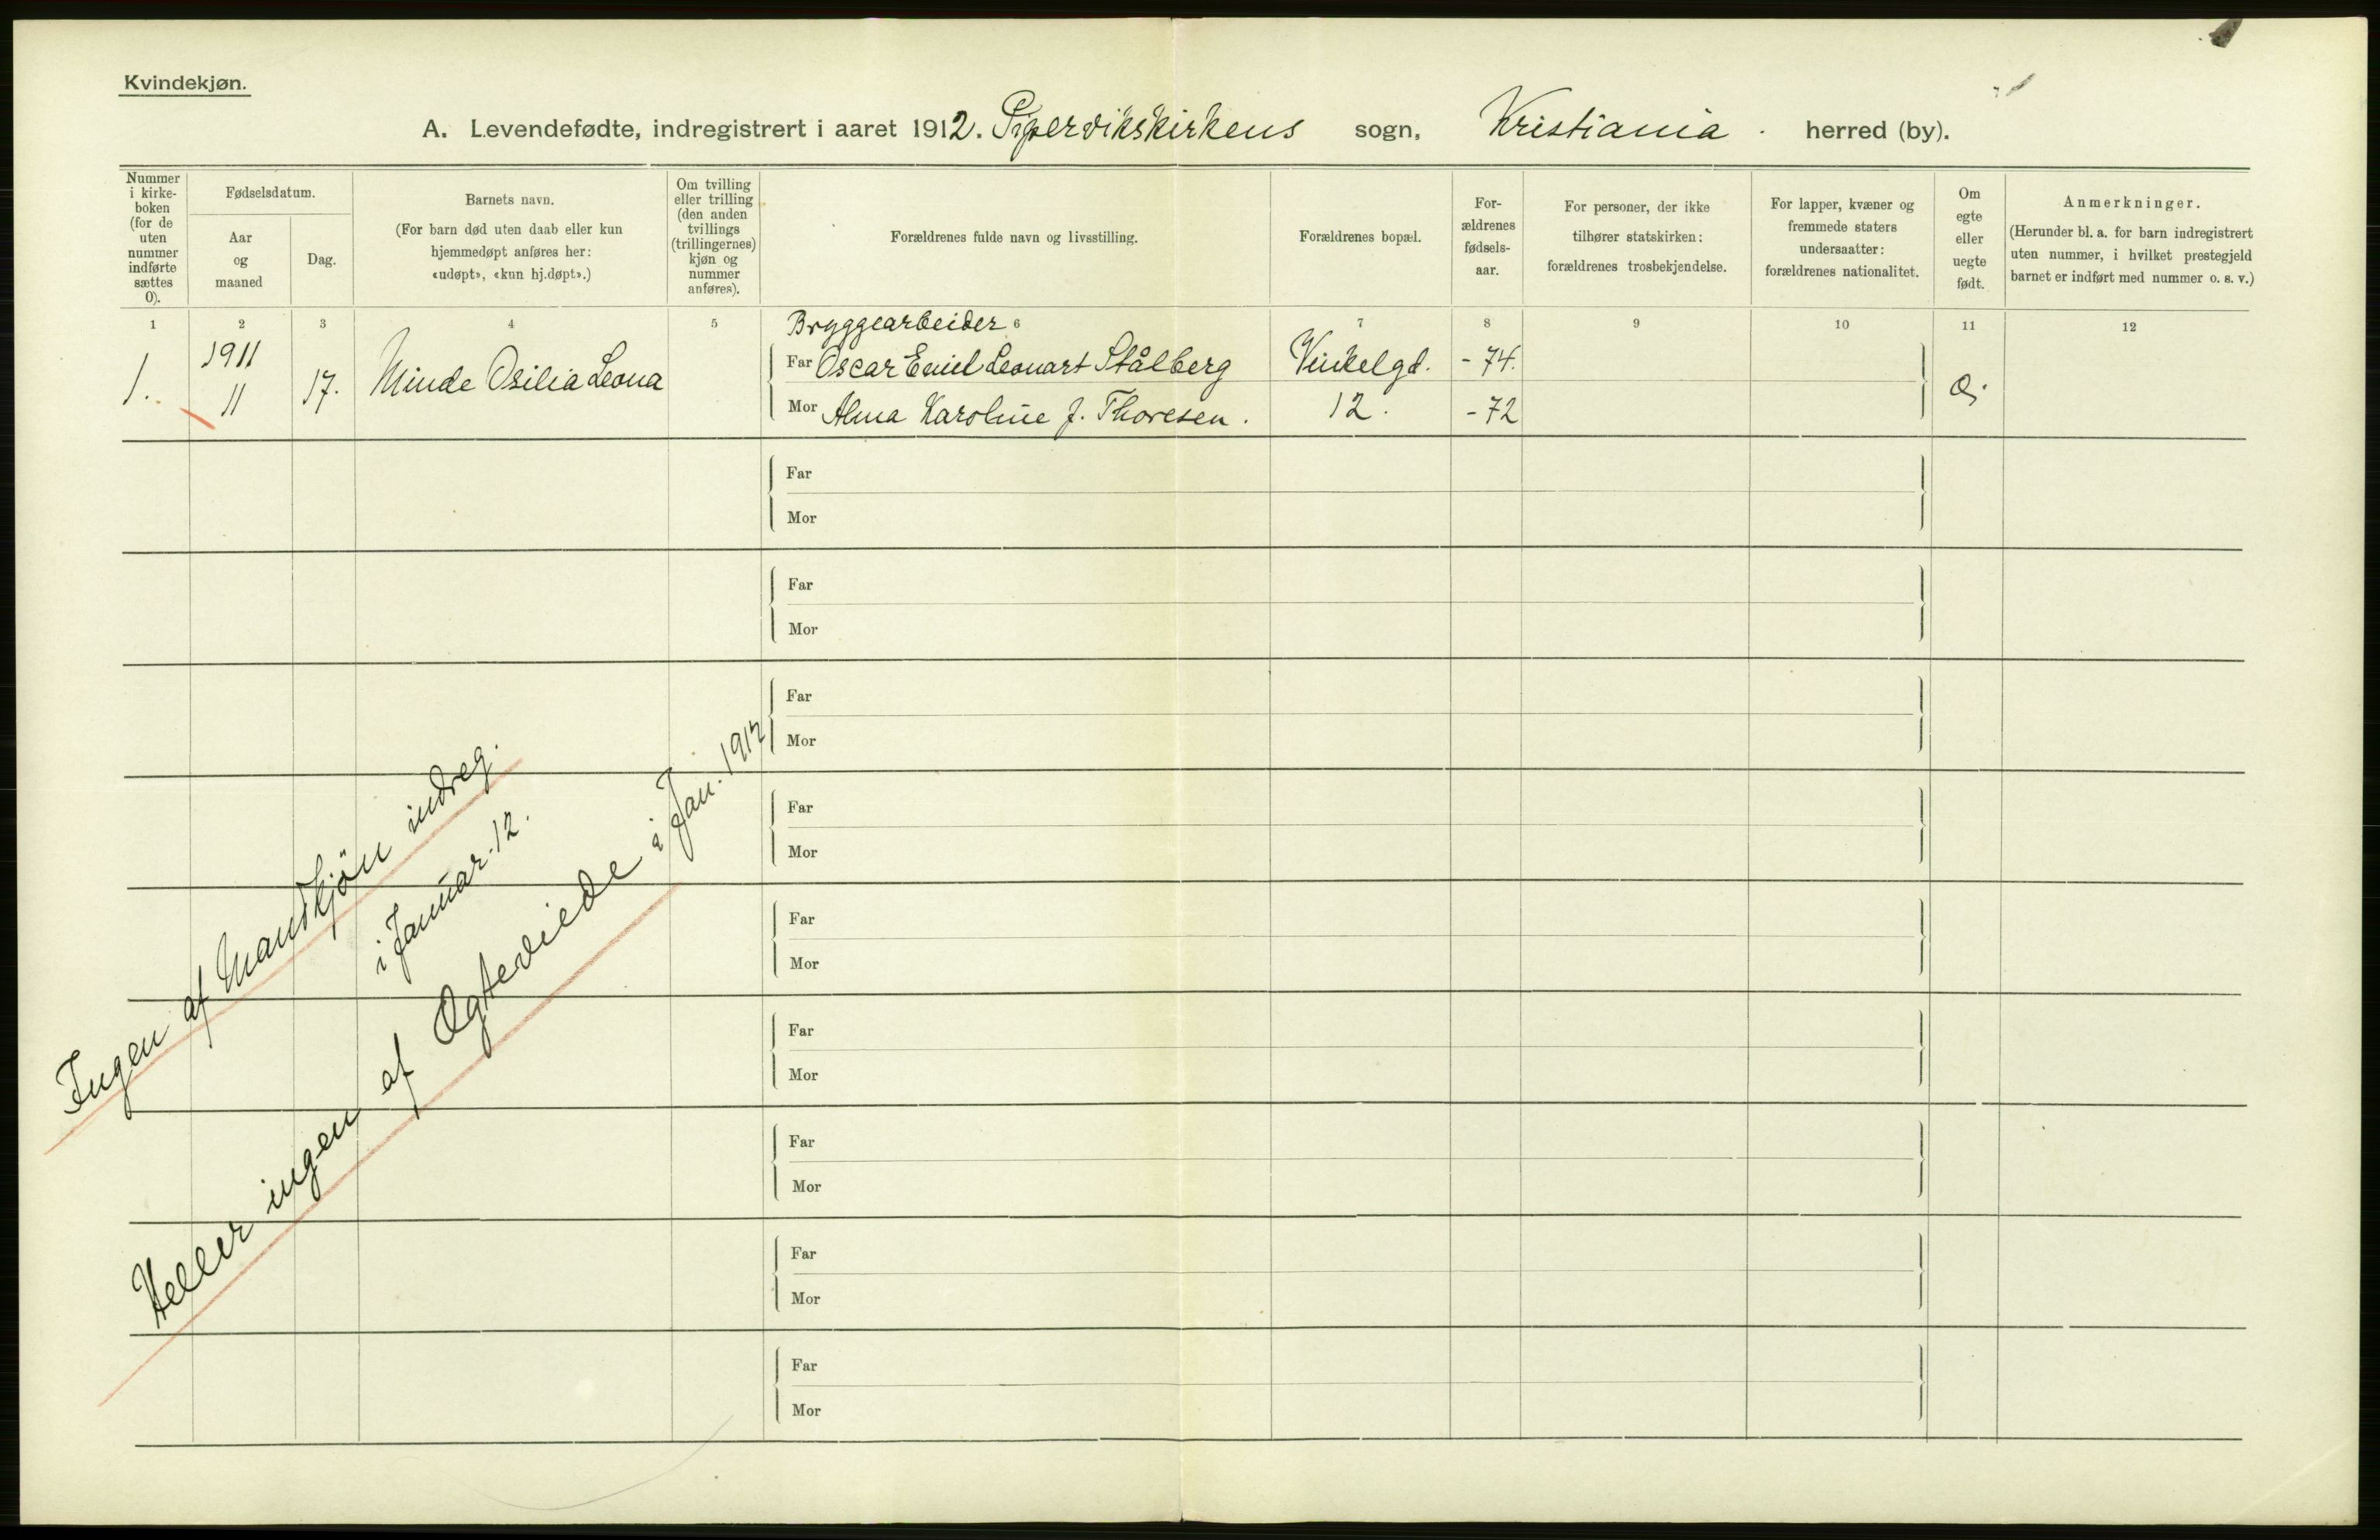 Kvindekjøn.
A. Levendefødte, indregistrert i aaret 1912. Pipervikskirkens sogn, Kristiania. herred (by).
Nummer
i kirke-
boken
(for de
uten
nummer
indførte
sættes
0).
Fødselsdatum.
Aar
og
maaned
Dag.
Barnets navn.
(For barn død uten daab eller kun
hjemmedøpt anføres her:
«udøpt», «kun hj.døpt».)
Om tvilling
eller trilling
(den anden
tvillings
(trillingernes)
kjøn og
nummer
anføres).
Forældrenes fulde navn og livsstilling.
Forældrenes bopæl.
For-
ældrenes
fødsels-
aar.
For personer, der ikke
tilhører statskirken:
forældrenes trosbekjendelse.
For lapper, kvæner og
fremmede staters
undersaatter:
forældrenes nationalitet.
Om
egte
eller
uegte
født.
Anmerkninger.
(Herunder bl. a. for barn indregistrert
uten nummer, i hvilket prestegjeld
barnet er indført med nummer o. s. v.)
1 2 3 4 5 6 7 8 9 10 11 12
Bryggearbeider
1. 1911 11 17. Minde Osilia Leona
Far Oscar Emil Leonart Stålberg Vinkelgd. - 74.
Mor Alma Karoline f. Thoresen. 12. - 72
Far
Mor
Far
Mor
Far
Mor
Far
Mor
Far
Mor
Far
Mor
Far
Mor
Far
Mor
Far
Mor
Ingen af Mandkjön indreg.
i Januar. 12.
Heller ingen af Ogteviede i Jan. 1912